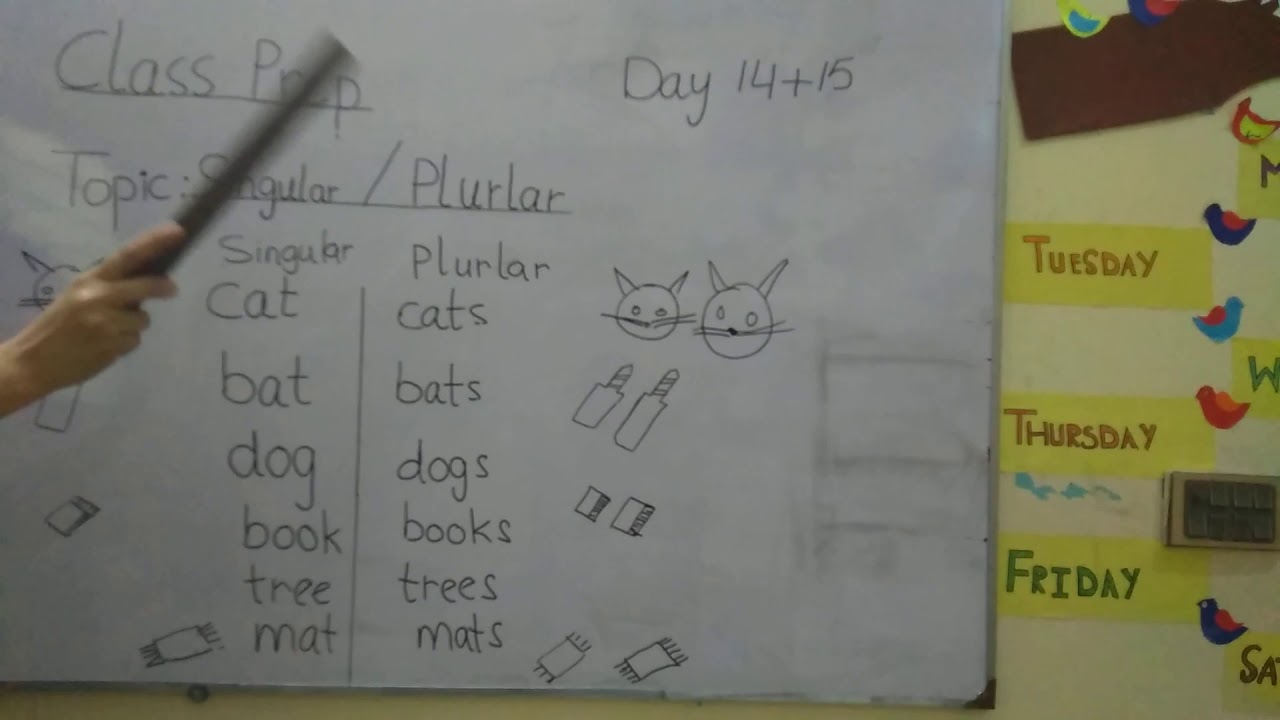 Class Prep
Day 14+15
Topic: Singular / Plurlar
Singular Plurlar
cat cats
bat bats
dog dogs
book books
tree trees
mat mats
TUESDAY
THURSDAY
FRIDAY